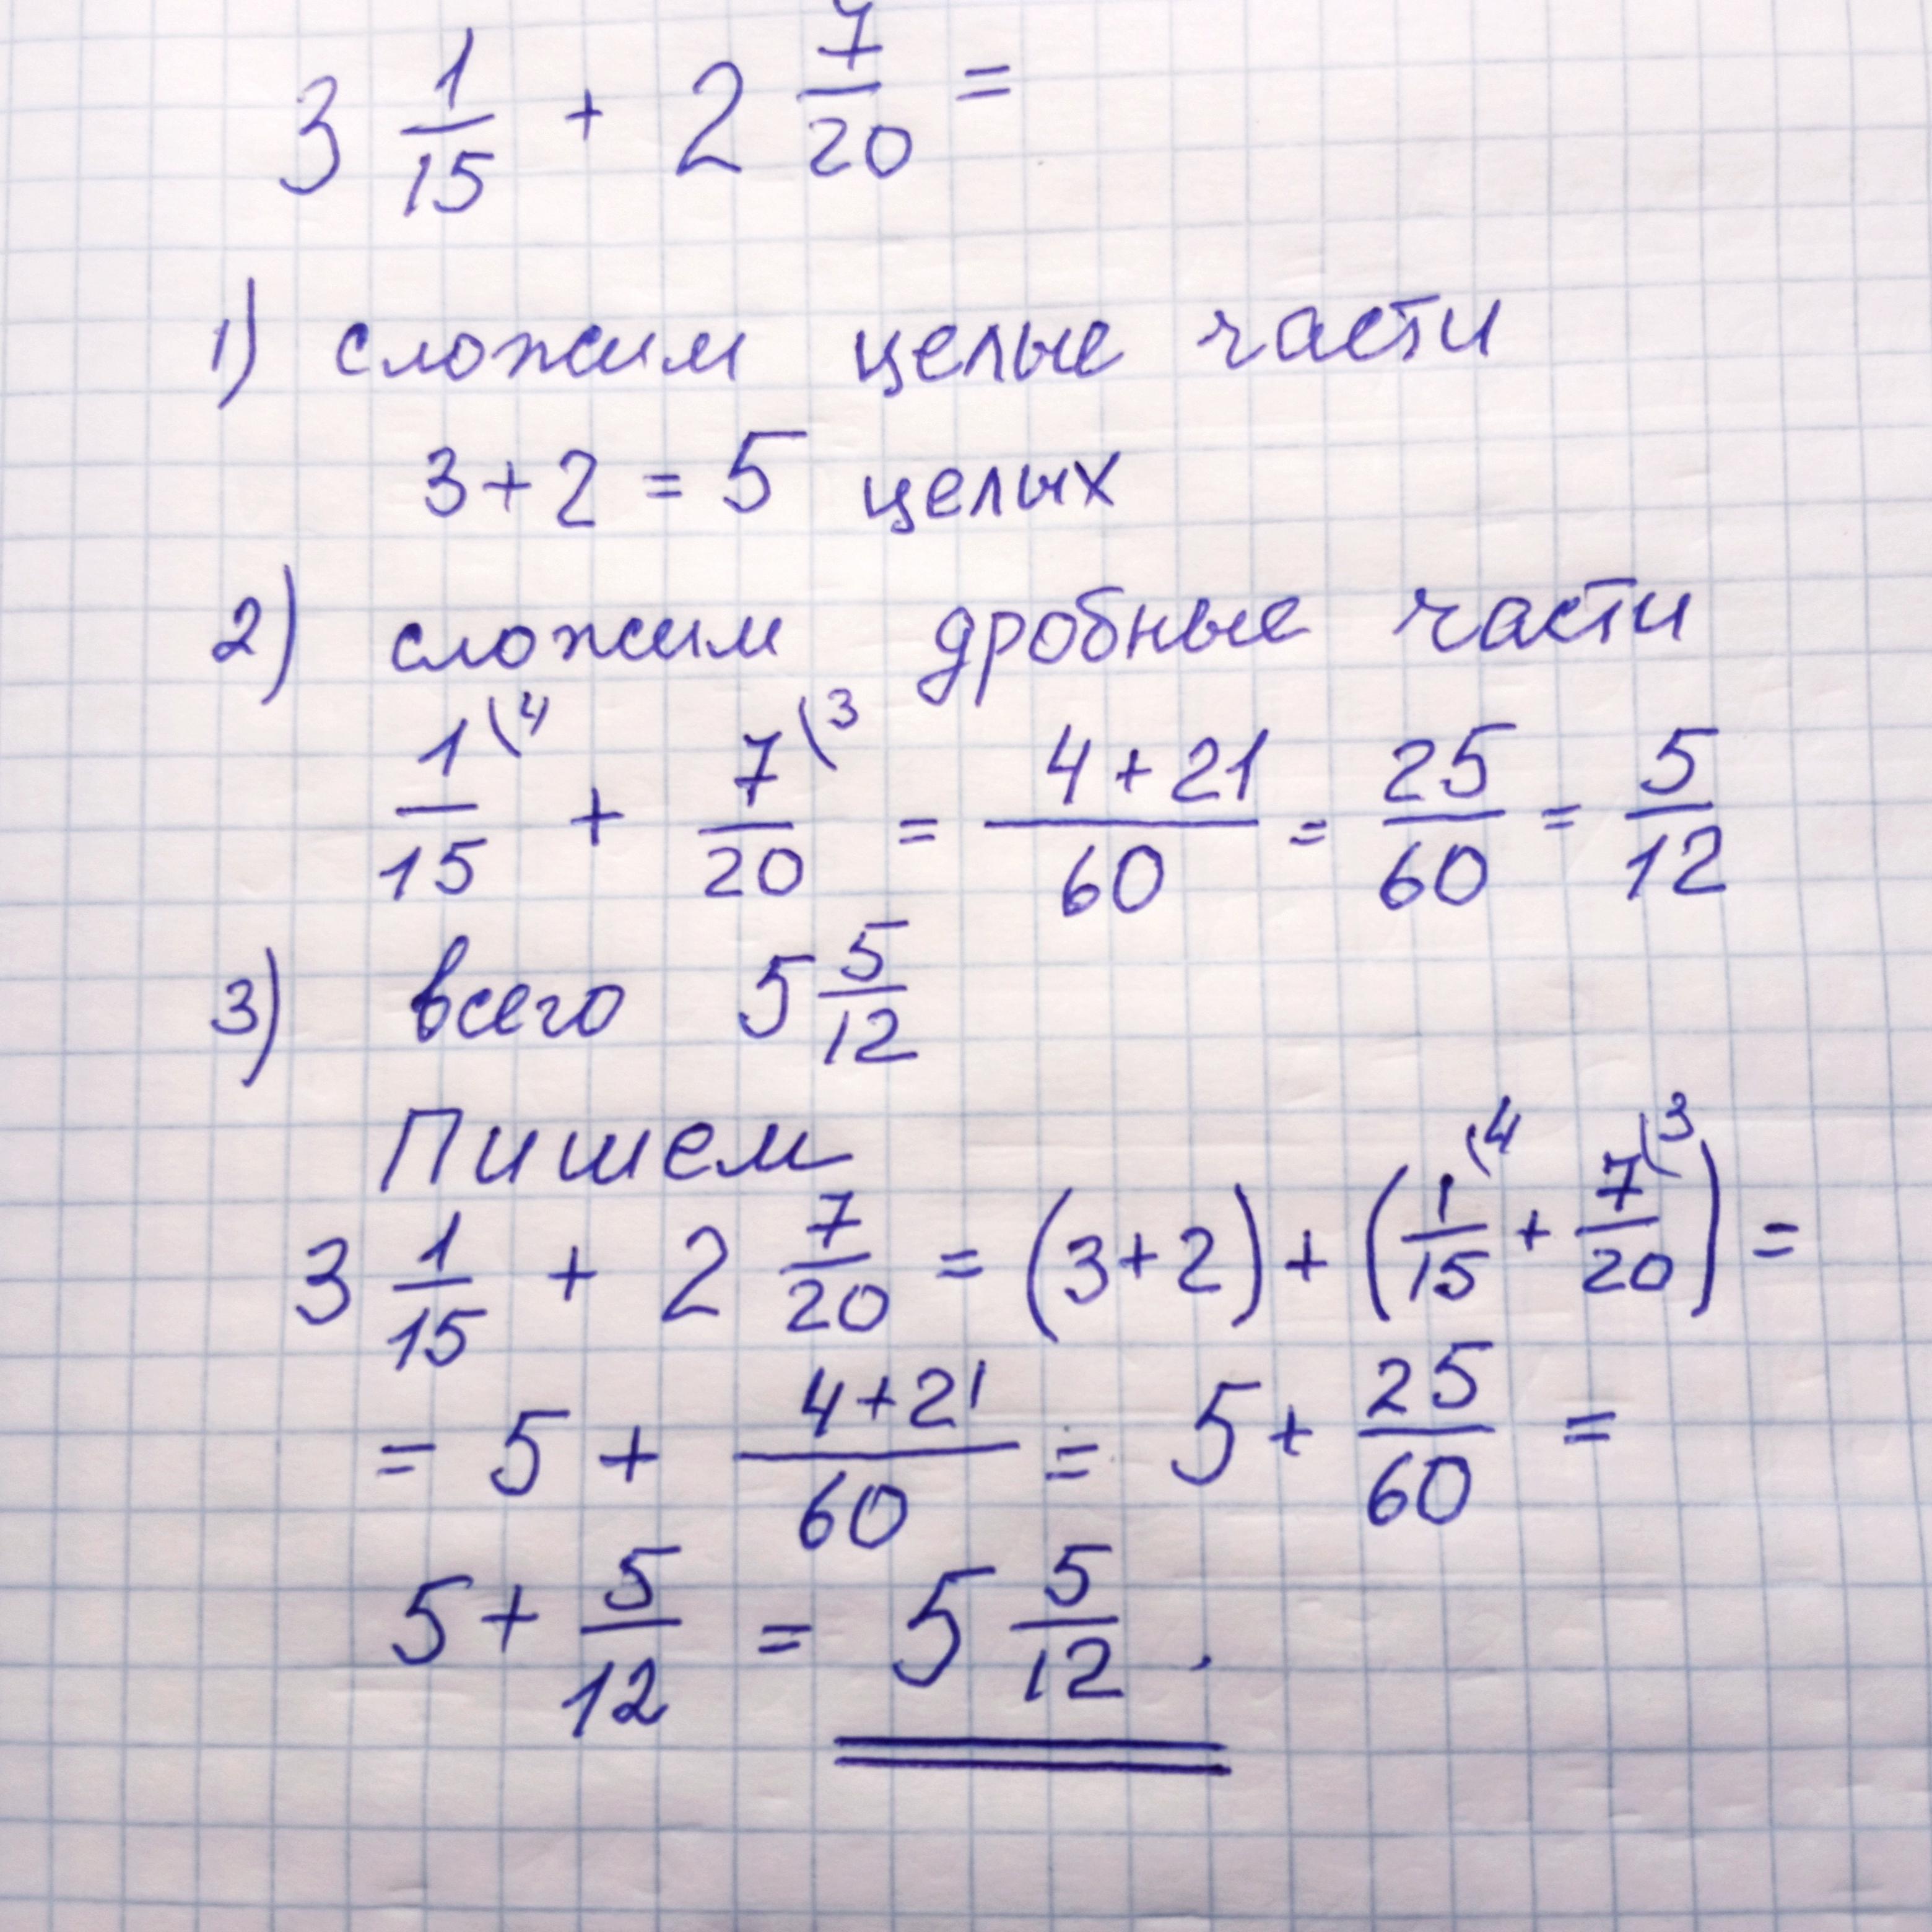 3 1/15 + 2 7/20 =
1) сложим целые части
3+2 = 5 целых
2) сложим дробные части
1/15 (4 + 7/20 (3 = (4+21)/60 = 25/60 = 5/12
3) всего 5 5/12
Пишем
3 1/15 + 2 7/20 = (3+2) + (1/15 (4 + 7/20 (3) =
= 5 + (4+21)/60 = 5 + 25/60 =
5 + 5/12 = 5 5/12 .